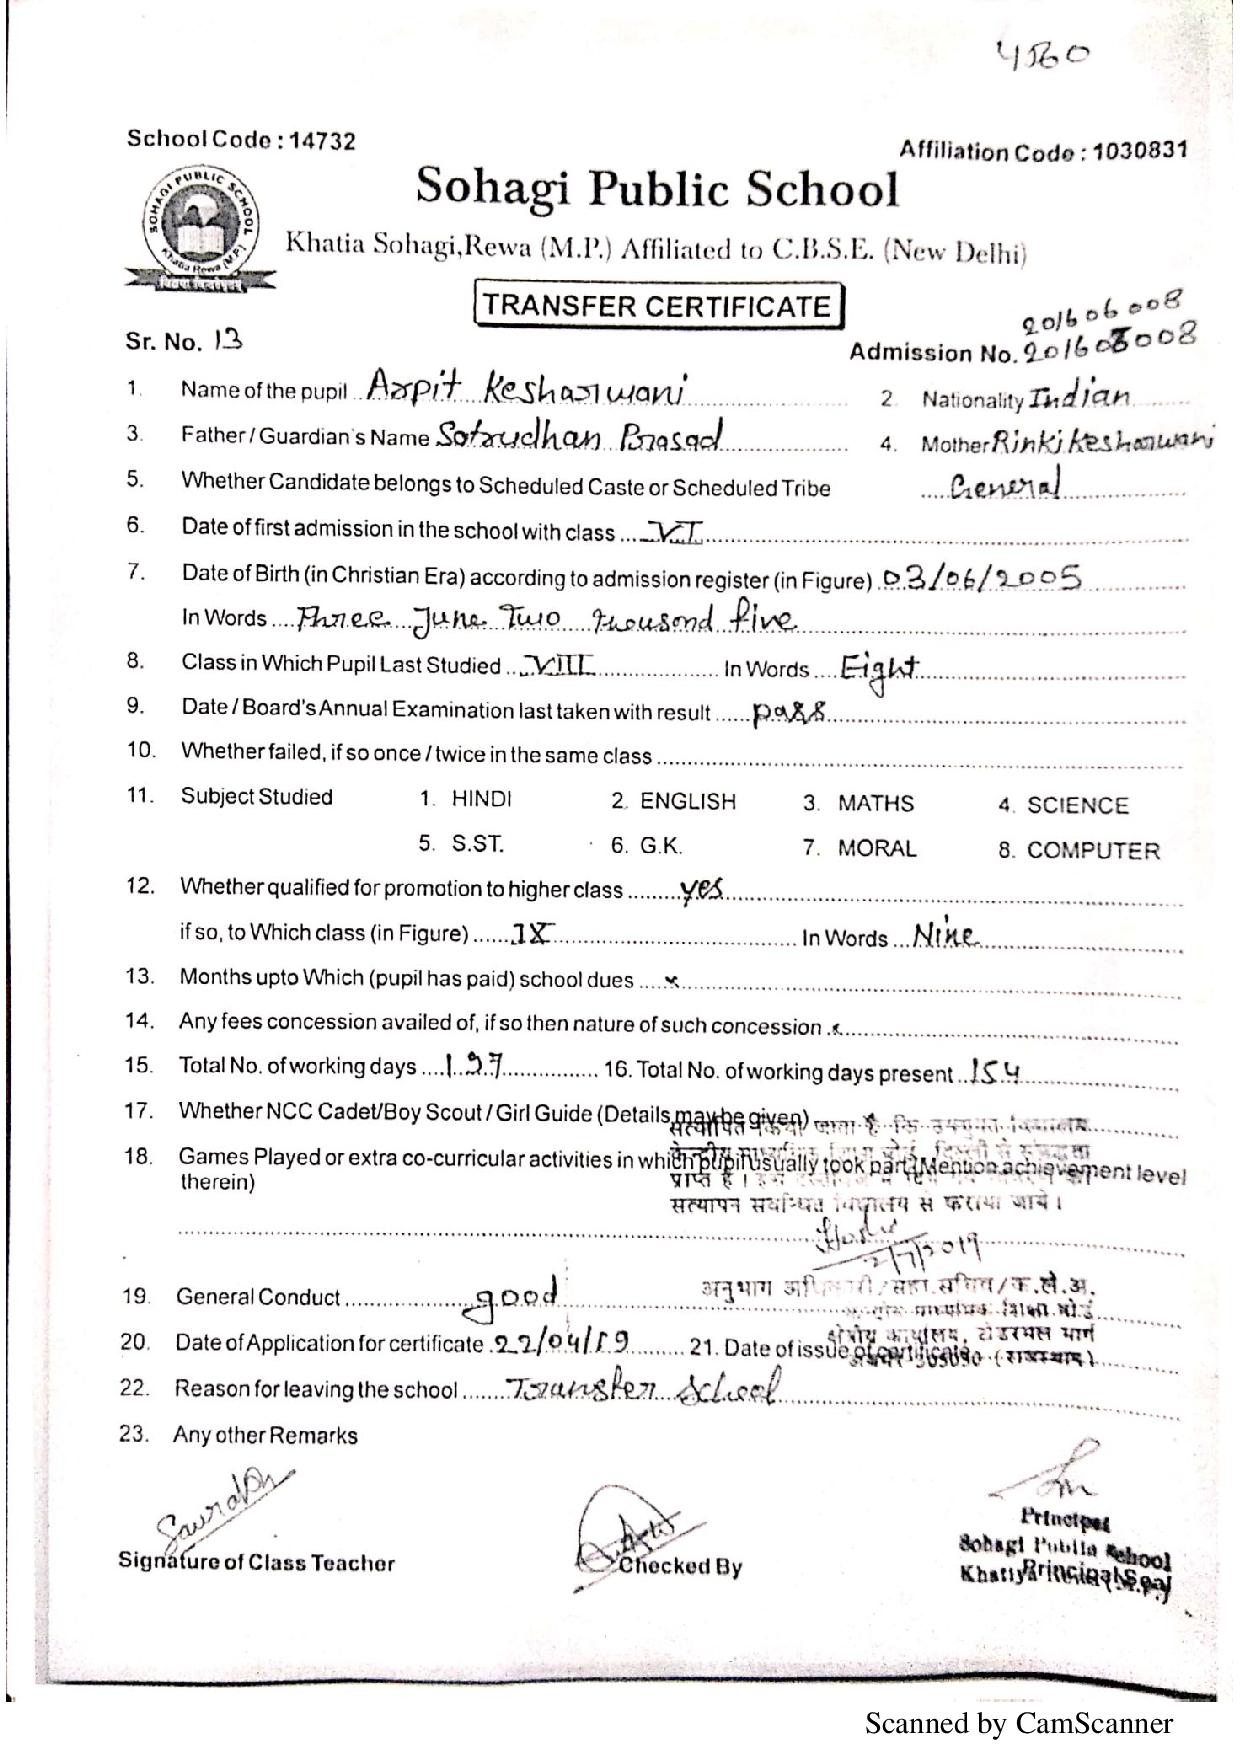 4560
School Code : 14732
Affiliation Code : 1030831
SOHAGI PUBLIC SCHOOL
Khatia Rewa (M.P.)
Sohagi Public School
Khatia Sohagi,Rewa (M.P.) Affiliated to C.B.S.E. (New Delhi)
TRANSFER CERTIFICATE
201606008
Sr. No. 13
Admission No. 201608008
1. Name of the pupil Arpit Kesharwani 2. Nationality Indian
3. Father / Guardian's Name Sotrudhan Prasad 4. Mother Rinki Kesharwani
5. Whether Candidate belongs to Scheduled Caste or Scheduled Tribe General
6. Date of first admission in the school with class VI
7. Date of Birth (in Christian Era) according to admission register (in Figure) 03/06/2005
In Words Three June Two thousond five
8. Class in Which Pupil Last Studied VIII In Words Eight
9. Date / Board's Annual Examination last taken with result pass
10. Whether failed, if so once / twice in the same class
11. Subject Studied 1. HINDI 2. ENGLISH 3. MATHS 4. SCIENCE
5. S.ST. 6. G.K. 7. MORAL 8. COMPUTER
12. Whether qualified for promotion to higher class yes
if so, to Which class (in Figure) IX In Words Nine
13. Months upto Which (pupil has paid) school dues x
14. Any fees concession availed of, if so then nature of such concession x
15. Total No. of working days 197 16. Total No. of working days present 154
17. Whether NCC Cadet/Boy Scout / Girl Guide (Details may be given)
सत्यापित किया जाता है कि उपयुक्त विद्यालय
18. Games Played or extra co-curricular activities in which pupil usually took part (Mention achievement level
therein)
प्राप्त है।
सत्यापन सर्वान्धित विद्यालय से कराया जाये।
2/7/2019
19. General Conduct good
अनुभाग अधिकारी/सहा.सचिव/क.ले.अ.
20. Date of Application for certificate 22/04/19 21. Date of issue of certificate
क्षेत्रीय कार्यालय, टोडरमल मार्ग
(राजस्थान)
22. Reason for leaving the school Transfer School
23. Any other Remarks
Saurabh
Signature of Class Teacher
Checked By
Principal
Sohagi Public School
Principal Seal
Scanned by CamScanner